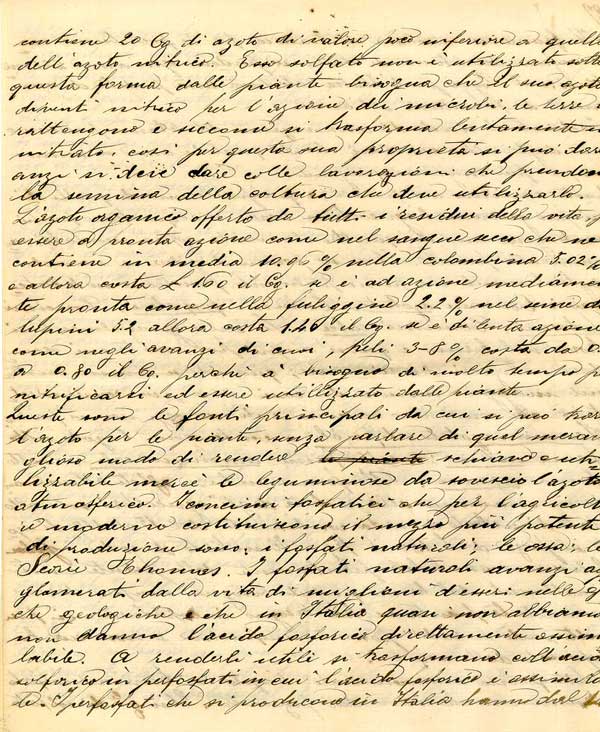 contiene 20 Cg. di azoto di valore poco inferiore a quello
dell'azoto nitrico. Esso solfato non è utilizzato sotto
questa forma dalle piante bisogna che il suo azoto
diventi nitrico per l'azione dei microbi, le terre
rattengono e siccome si trasforma lentamente
nitrato, così per questa sua proprietà si può dare
anzi si deve dare colle lavorazioni che
la semina della coltura che deve utilizzarlo.
L'azoto organico offerto da tutti i residui della vita,
essere a pronta azione come nel sangue secco che ne
contiene in media 10.96 % nella colombina 5.02 %
e allora costa £ 1.60 il Cg. se è ad azione mediamen
te pronta come nella fuliggine 2.2 % nel seme di
lupini 5.2 allora costa 1.40 il Cg. se è di lenta azione
come negli avanzi di cuoi, peli 3-8 % costa da 0.
a 0.80 il Cg. perchè à bisogno di molto tempo p
nitrificarsi ed essere utilizzato dalle piante.
Queste sono le fonti principali da cui si può trar
l'azoto per le piante, senza parlare di quel mera
viglioso modo di rendere le piante schiavo e uti
lizzabile mercè le leguminose da sovescio l'azoto
atmosferico. I concimi fosfatici che per l'agricolt
re moderno costituiscono il mezzo più potente
di produzione sono: i fosfati naturali; le ossa; le
Scorie Thomas. I fosfati naturali avanzi ag
glomerati dalla vita di milioni d'esseri nelle ep
che geologiche e che in Italia quasi non abbiamo
non danno l'acido fosforico direttamente assimi
labile. A renderli utili si trasformano coll'acido
solforico in perfosfati in cui l'acido fosforico è assimila
le. I perfosfati che si producono in Italia hanno dal